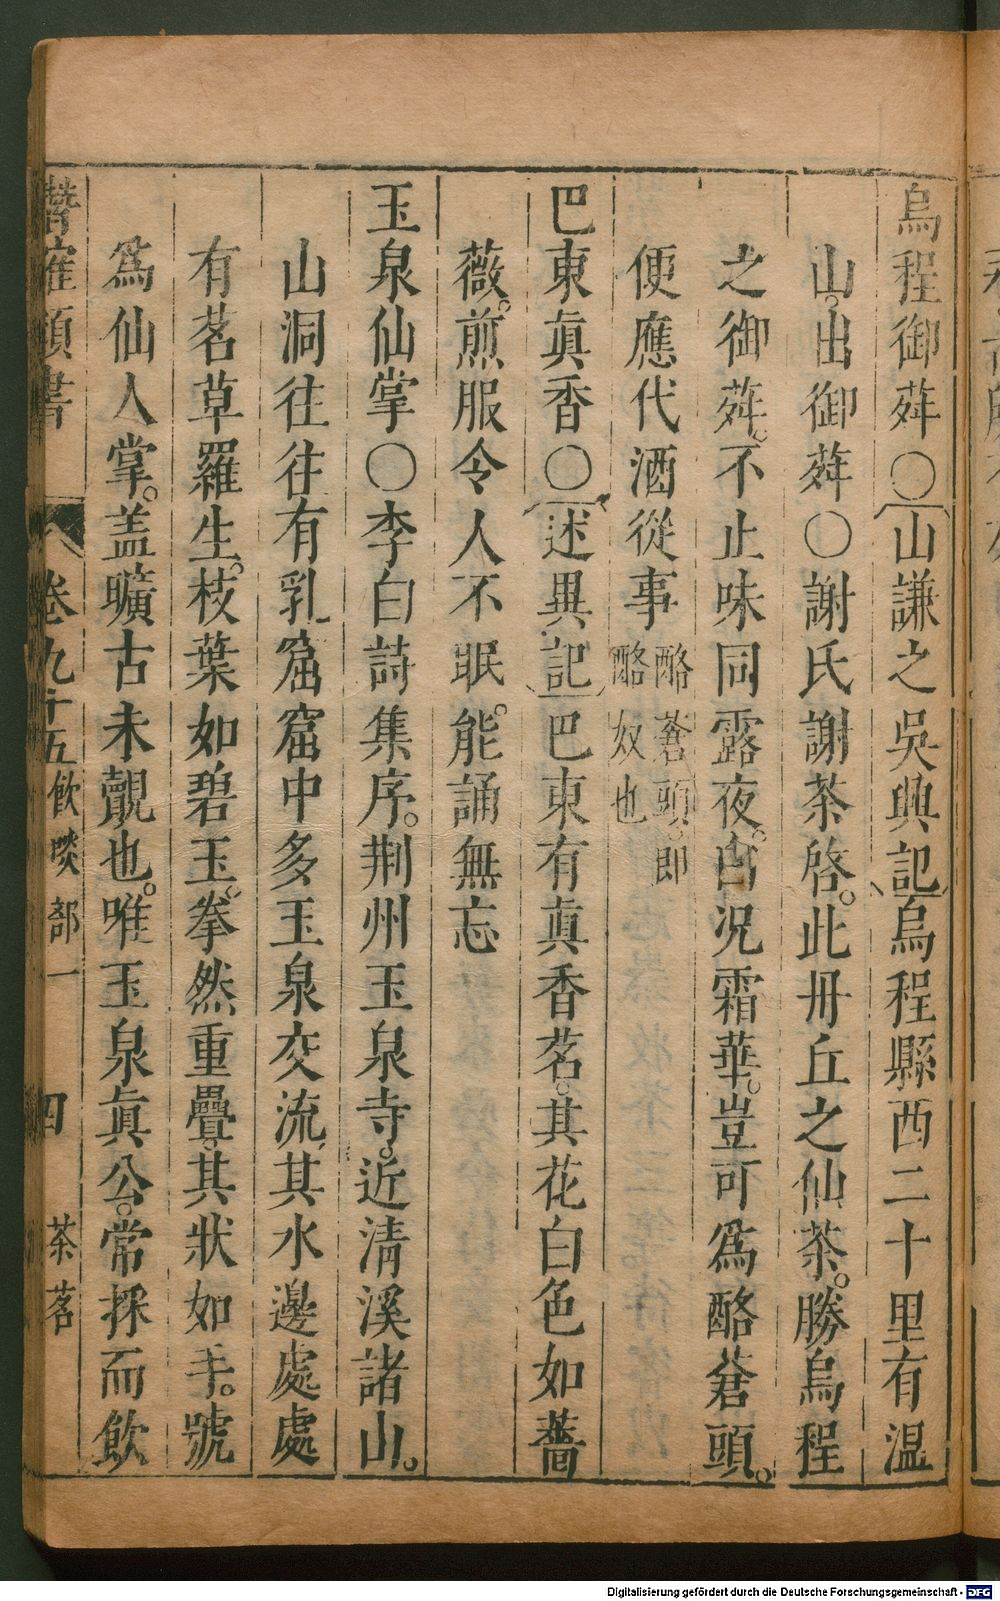 烏程御荈○山謙之吳興記烏程縣西二十里有温
山。出御荈○謝氏謝茶啓。此丹丘之仙茶。勝烏程
之御荈。不止味同露夜。白况霜華。豈可為酪蒼頭。
便應代酒從事酪蒼頭。即
酪奴也
巴東眞香○述異記巴東有眞香茗。其花白色如薔
薇。煎服令人不眠。能誦無忘
玉泉仙掌○李白詩集序。荆州玉泉寺。近清溪諸山。
山洞往往有乳窟窟中多玉泉交流其水邊處處
有茗草羅生。枝葉如碧玉。拳然重疊。其狀如手。號
為仙人掌。盖曠古未覿也。唯玉泉眞公。常採而飲
潛確類書 卷九十五飲啖部一 四 茶茗
Digitalisierung gefördert durch die Deutsche Forschungsgemeinschaft - DFG